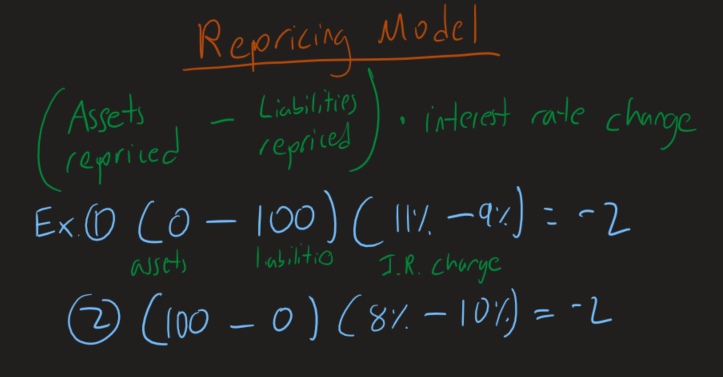 Repricing Model
(Assets repriced – Liabilities repriced) · interest rate change
Ex. ① (0 – 100) (11% – 9%) = -2
assets liabilitio I.R. change
② (100 – 0) (8% – 10%) = -2